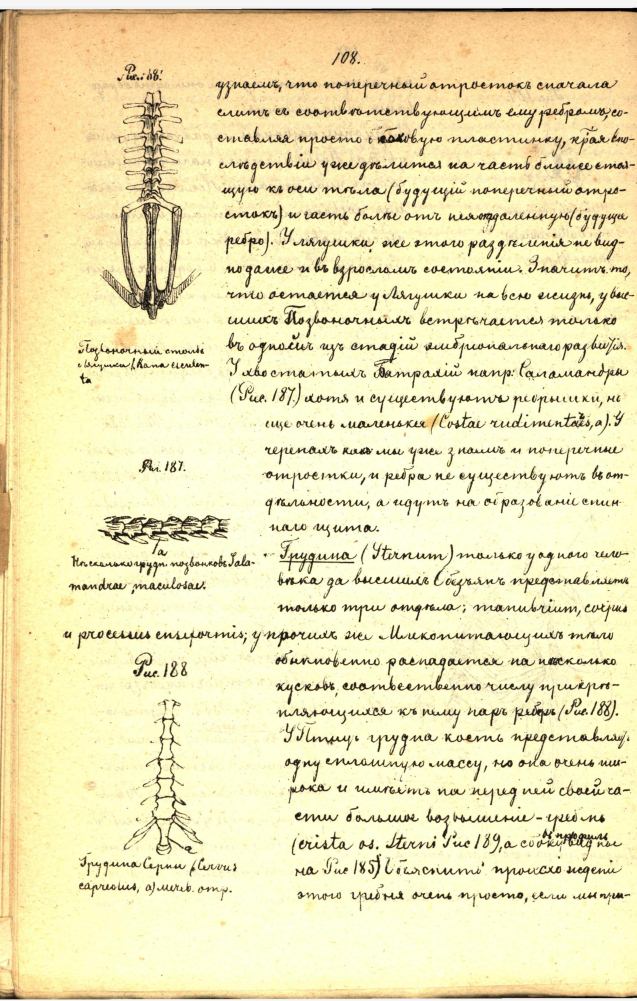 108.
Рис. 186.
узнаемъ, что поперечный отростокъ сначала
слитъ съ соотвѣтствующимъ ему ребромъ, со-
ставляя просто боковую пластинку, края впо-
слѣдствіи уже дѣлится на часть ближе стоя-
щую къ оси тѣла (будущій поперечный отро-
стокъ) и часть болѣе отъ нея отдаленную (будуще
ребро). У лягушки же этого раздѣленія не вид-
но даже и въ взросломъ состояніи. Значитъ то,
что остается у Лягушки на всю жизнь, у выс-
шихъ Позвоночныхъ встрѣчается только
въ одной изъ стадій эмбріональнаго развитія.
У хвостатыхъ Батрахій напр: Саламандры
(Рис. 187.) хотя и существуютъ ребрышки, но
еще очень маленькія (Costae rudimentales, a). У
черепахъ какъ мы уже знаемъ и поперечные
отростки, и ребра не существуютъ въ от-
дѣльности, а идутъ на образованіе спин-
наго щита.
Позвоночный столбъ
Лягушки Rana esculen-
ta
Рис. 187.
a
Нѣсколько грудн. позвонковъ Sala-
mandrae maculosae.
Грудина (Sternum) только у одного чело-
вѣка да высшихъ Обезьянъ представляетъ
только три отдѣла; manubrium, corpus
и processus ensiformis; у прочихъ же Млекопитающихъ тѣло
обыкновенно распадается на нѣсколько
кусковъ, соотвественно числу прикрѣ-
пляющихся къ нему паръ реберъ (Рис. 188).
У Птицъ грудна кость представляетъ
одну сплошную массу, но она очень ши-
рока и имѣетъ на передней своей ча-
сти большое возвышеніе - гребень
(crista os. sterni Рис 189, а сбоку въ профиль видное
на Рис 185) Объяснить происхожденіе
этого гребня очень просто, если мы при-
Рис. 188
a
Грудина Серны Cervus
capreolus, a) мечев. отр.